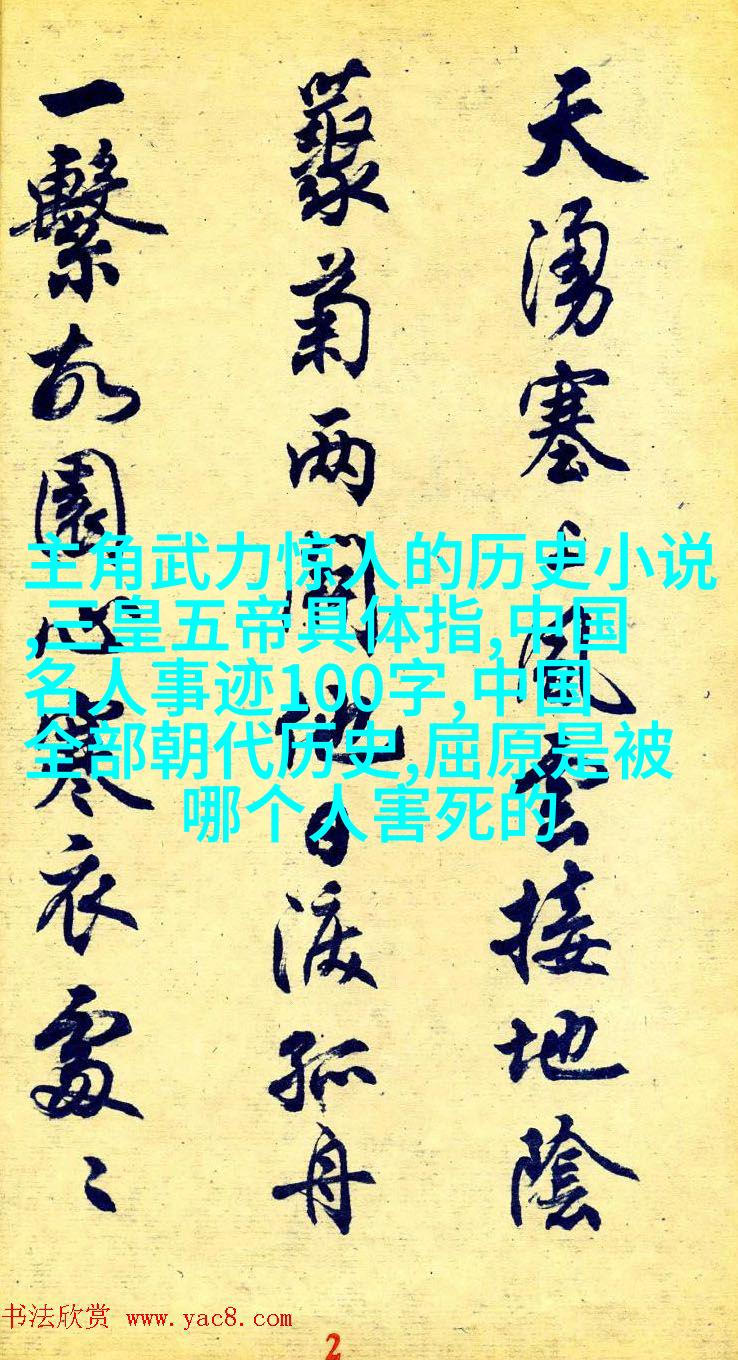 天湧塞上風雲接地陰
叢菊两開他日淚孤舟
一繫故園心寒衣處〻
主角武力惊人的历史小说
,三皇五帝具体指,中国
名人事迹100字,中国
全部朝代历史,屈原是被
哪个人害死的
书法欣赏 www.yac8.com
2